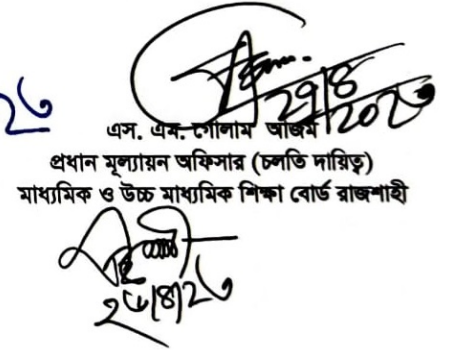 ২৯/৪/২০২৩
এস. এম. গোলাম আজম
প্রধান মূল্যায়ন অফিসার (চলতি দায়িত্ব)
মাধ্যমিক ও উচ্চ মাধ্যমিক শিক্ষা বোর্ড রাজশাহী